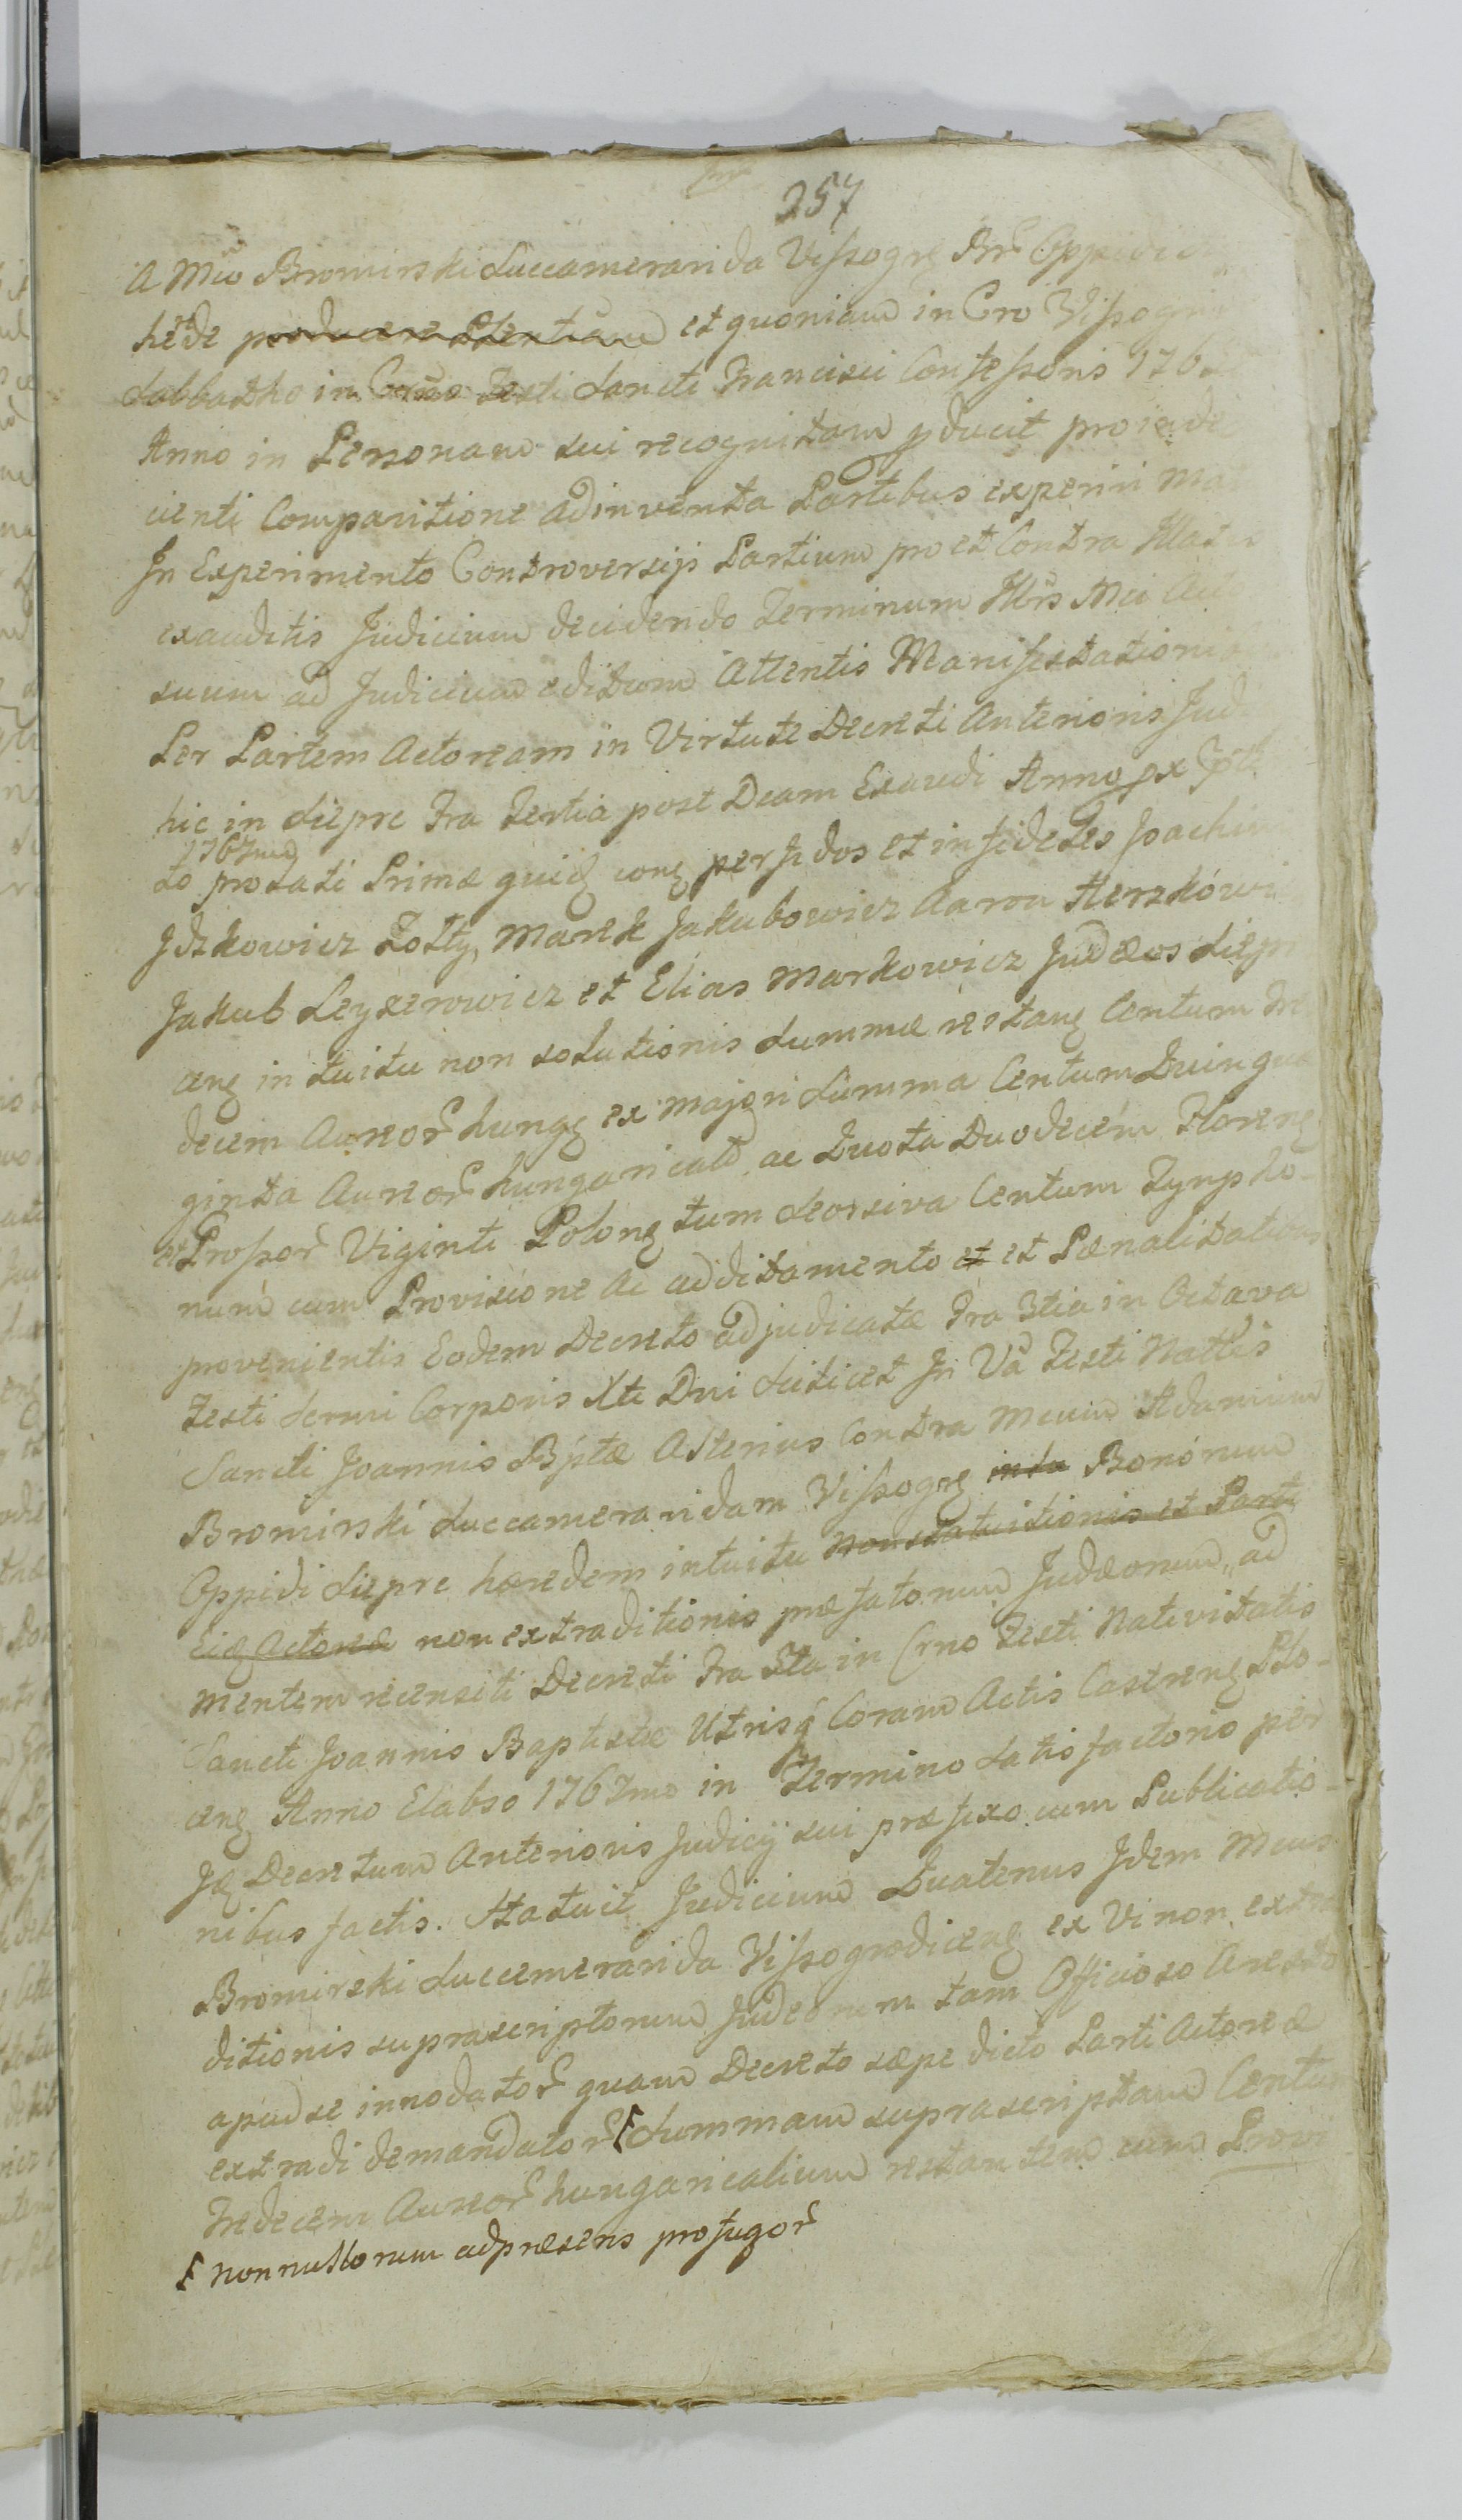 257
A Mco Bromirski Succameranida Vissogrę Br Oppidi
hede producere Stentiam et quoniam in Cro Vissogrn
Sabbatho in Crno Festi Sancti Francisci Confessoris 176
Anno in Personam sui recognitam pducit proinde
cienti Comparitione adinventa Partibus experiri Ma
In Experimento Controversijs Partium pro et Contra Illata
exauditis Judicium decidendo Terminum Hbrs Mci Acto
suum ad Judicium editum Attentis Manifestationi
Per Partem Actoream in Virtute Decreti Anterioris Jud
hic in Siepre Fra Tertia post Dcam Exaudi Anno px
1767mo
to prolati Primæ quidę conę perfidos et infideles Joachim
Jdzkowicz Zołty, Marek Jakubowicz Aaron Herzkówi
Jakub Leyzerowicz et Elias Markowicz Judæos Siepr
cenę intuitu non solutionis Summæ restanę Centum Tre
decem Aureor hungę ex majori Summa Centum Quinqua
ginta Aureor hungaricaló ac Quota Duodecim Florenę
et Grossor Viginti Polonę tum Seorsiva Centum Tynpho-
num cum Provisione ac additamento et et Pænalitatibus
provenientis Eodem Decreto adjudicatæ Fra 3tia in Octava
Festi Sermi Corporis Xti Dni Scilicet In Va Festi Nattis
Sancti Joannis Bptæ Alterius Contra Mcum Adamum
Bromirski Succameranidam Vissogrę intu Bonorum
Oppidi Siepre hæredem intuitu Non statuitionis et Parti
Eidę Actoreæ non extraditionis præfatorum Judæorum, ad
mentem recensiti Decreti Fra Sta in Crno Festi Nativitatis
Sancti Joannis Baptistæ Utrisq Coram Actis Castrenę Plo-
cenę Anno Elabso 1767mo in Termino Satisfactorio per
Jdę Decretum Anterioris Judicij sui præfixo cum Publicatio-
nibus factis. Statuit Judicium Quatenus Jdem Mcus
Bromirski Succemeranida Vissogrodicenę ex Vi non extra
ditionis suprascriptorum Judeorum tam Officioso Aresto
apud se innodator quam Decreto sæpe dicto Parti Actoreæ
extradi demandator Summam suprascriptam Centum
Tredecem Aureor hungaricalium restantem cum Provi
nonnullorum adpræsens profugor